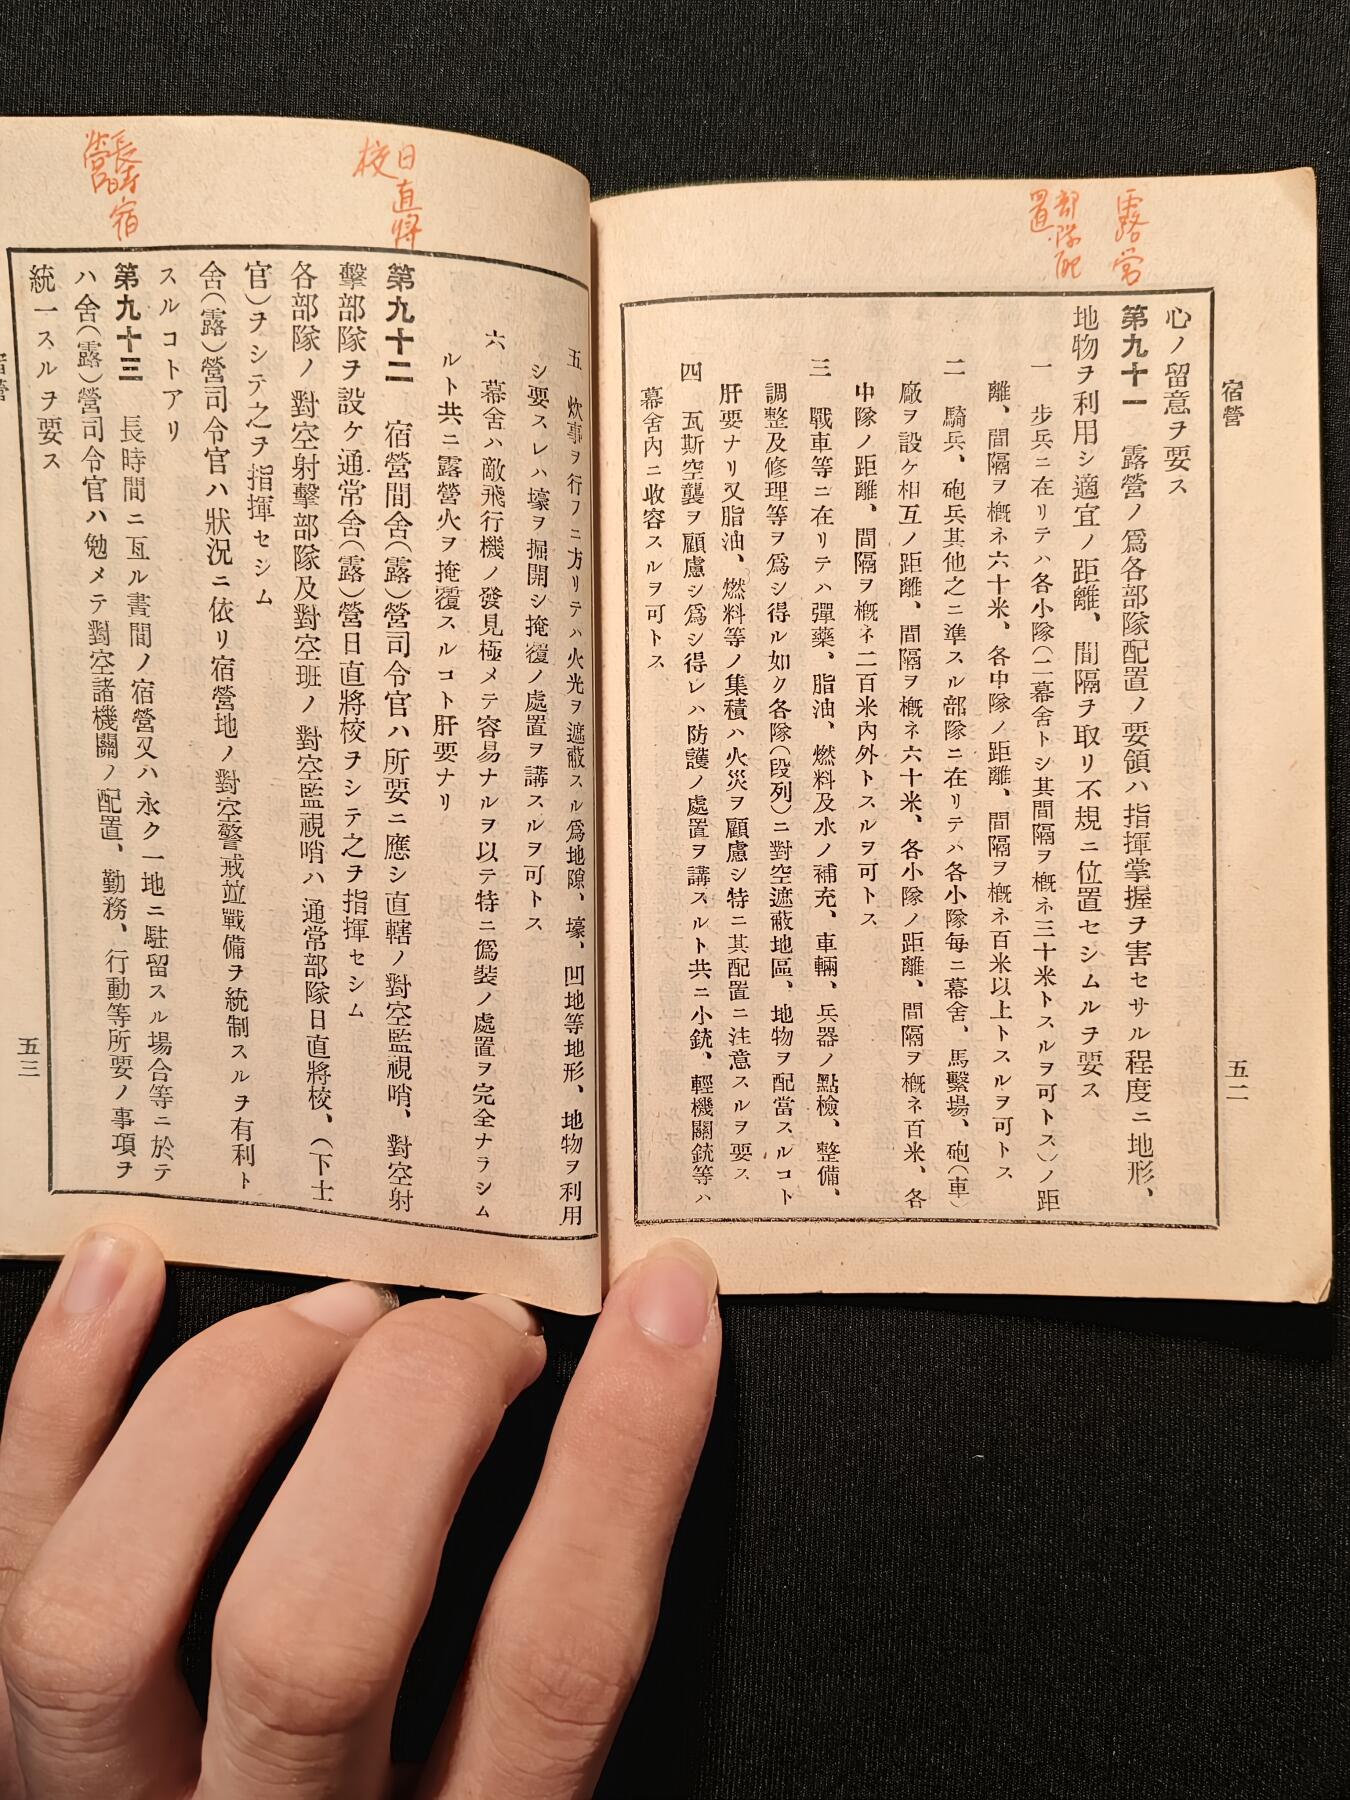 露営
部隊配
置
宿營
心ノ留意ヲ要ス
第九十一　露營ノ爲各部隊配置ノ要領ハ指揮掌握ヲ害セサル程度ニ地形、
地物ヲ利用シ適宜ノ距離、間隔ヲ取リ不規ニ位置セシムルヲ要ス
一　步兵ニ在リテハ各小隊(二幕舍トシ其間隔ヲ槪ネ三十米トスルヲ可トス)ノ距
離、間隔ヲ槪ネ六十米、各中隊ノ距離、間隔ヲ槪ネ百米以上トスルヲ可トス
二　騎兵、砲兵其他之ニ準スル部隊ニ在リテハ各小隊每ニ幕舍、馬繫場、砲(車)
廠ヲ設ケ相互ノ距離、間隔ヲ槪ネ六十米、各小隊ノ距離、間隔ヲ槪ネ百米、各
中隊ノ距離、間隔ヲ槪ネ二百米內外トスルヲ可トス
三　戰車等ニ在リテハ彈藥、脂油、燃料及水ノ補充、車輛、兵器ノ點檢、整備、
調整及修理等ヲ爲シ得ル如ク各隊(段列)ニ對空遮蔽地區、地物ヲ配當スルコト
肝要ナリ又脂油、燃料等ノ集積ハ火災ヲ顧慮シ特ニ其配置ニ注意スルヲ要ス
四　瓦斯空襲ヲ顧慮シ爲シ得レハ防護ノ處置ヲ講スルト共ニ小銃、輕機關銃等ハ
幕舍內ニ收容スルヲ可トス
五二
日直將
校
長時
宿
營
五　炊事ヲ行フニ方リテハ火光ヲ遮蔽スル爲地隙、壕、凹地等地形、地物ヲ利用
シ要スレハ壕ヲ掘開シ掩覆ノ處置ヲ講スルヲ可トス
六　幕舍ハ敵飛行機ノ發見極メテ容易ナルヲ以テ特ニ僞裝ノ處置ヲ完全ナラシム
ルト共ニ露營火ヲ掩覆スルコト肝要ナリ
第九十二　宿營間舍(露)營司令官ハ所要ニ應シ直轄ノ對空監視哨、對空射
擊部隊ヲ設ケ通常舍(露)營日直將校ヲシテ之ヲ指揮セシム
各部隊ノ對空射擊部隊及對空班ノ對空監視哨ハ通常部隊日直將校、(下士
官)ヲシテ之ヲ指揮セシム
舍(露)營司令官ハ狀況ニ依リ宿營地ノ對空警戒竝戰備ヲ統制スルヲ有利ト
スルコトアリ
第九十三　長時間ニ亙ル晝間ノ宿營又ハ永ク一地ニ駐留スル場合等ニ於テ
ハ舍(露)營司令官ハ勉メテ對空諸機關ノ配置、勤務、行動等所要ノ事項ヲ
統一スルヲ要ス
宿營
五三